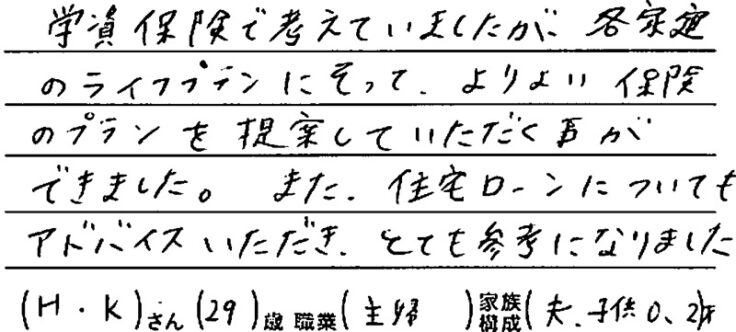 学資保険で考えていましたが、各家庭
のライフプランにそって、よりよい保険
のプランを提案していただく事が
できました。また、住宅ローンについても
アドバイスいただき、とても参考になりました
(H・K)さん(29)歳 職業(主婦)家族構成(夫、子供0、2才